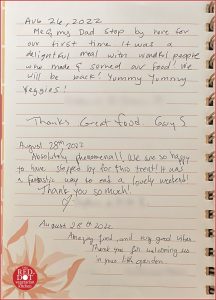 Aug 26, 2022
Me & my Dad stop by here for
our first time it was a
delightful meal with wonderful people
who made & served our food! We
will be back! Yummy Yummy
Veggies!
Thanks Great food Gary S
August 28th 2022
Absolutly phenomenal!! We are so happy
to have stopped by for this treat! It was
a fantastic way to end a lovely weekend!
Thank you so much!
August 28th 2022
Amazing food, and very good vibes.
Thank you for welcoming us
in your garden
RED DOT
vegetarian
kitchen